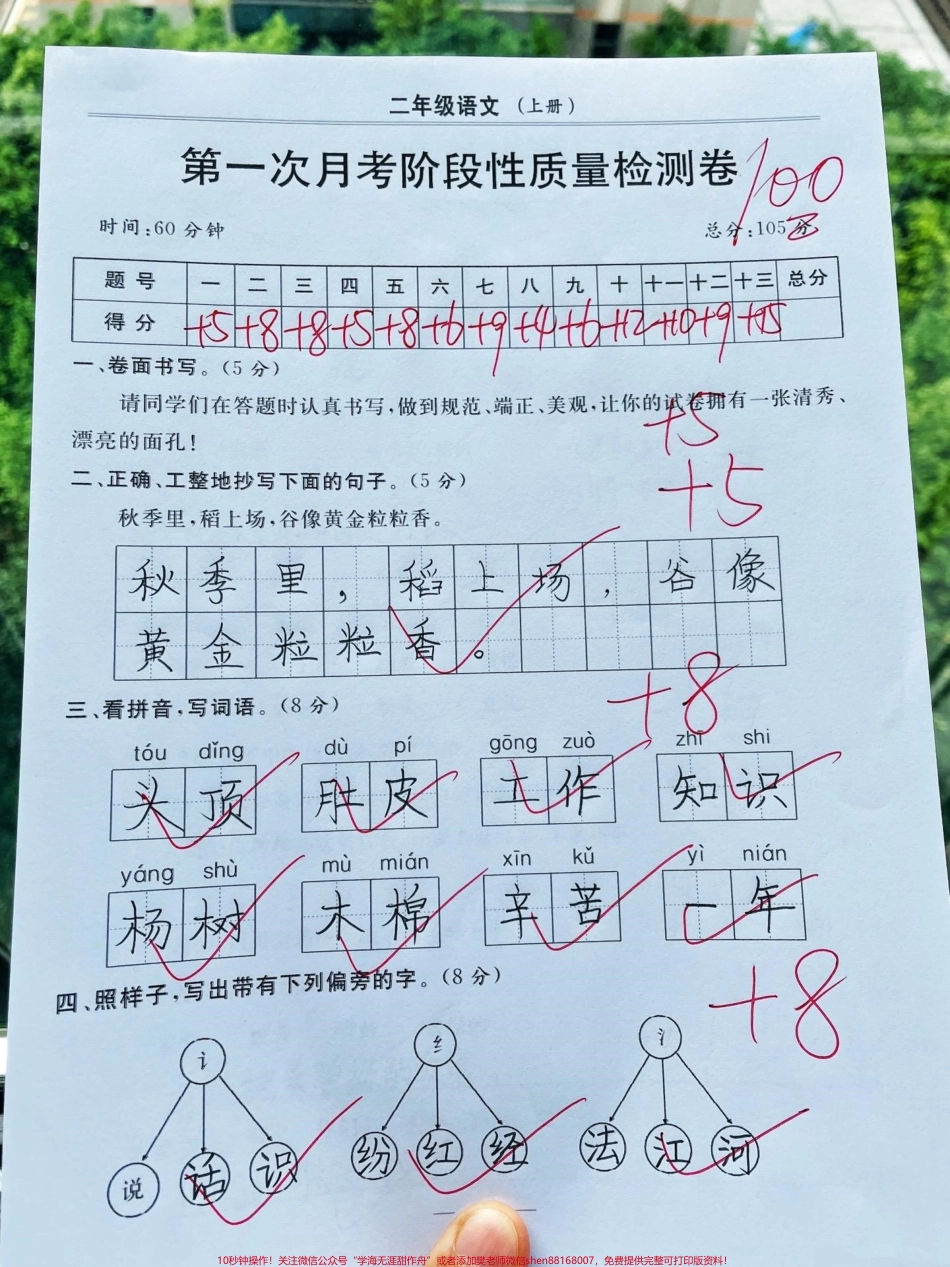 二年级语文（上册）
第一次月考阶段性质量检测卷
100
时间:60分钟 总分:105分
题号 一 二 三 四 五 六 七 八 九 十 十一 十二 十三 总分
得分 +5 +8 +8 +5 +8 +6 +9 +4 +6 +12 +10 +9 +15
一、卷面书写。(5分)
请同学们在答题时认真书写,做到规范、端正、美观,让你的试卷拥有一张清秀、
漂亮的面孔!
+5
二、正确、工整地抄写下面的句子。(5分)
+5
秋季里,稻上场,谷像黄金粒粒香。
秋季里,稻上场,谷像
黄金粒粒香。
三、看拼音,写词语。(8分)
+8
tóu dǐng dù pí gōng zuò zhī shi
头顶 肚皮 工作 知识
yáng shù mù mián xīn kǔ yì nián
杨树 木棉 辛苦 一年
四、照样子,写出带有下列偏旁的字。(8分)
+8
讠 纟 氵
说 话 识 纷 红 经 法 江 河
10秒钟操作！关注微信公众号“学海无涯甜作舟”或者添加樊老师微信shen88168007，免费提供完整可打印版资料！